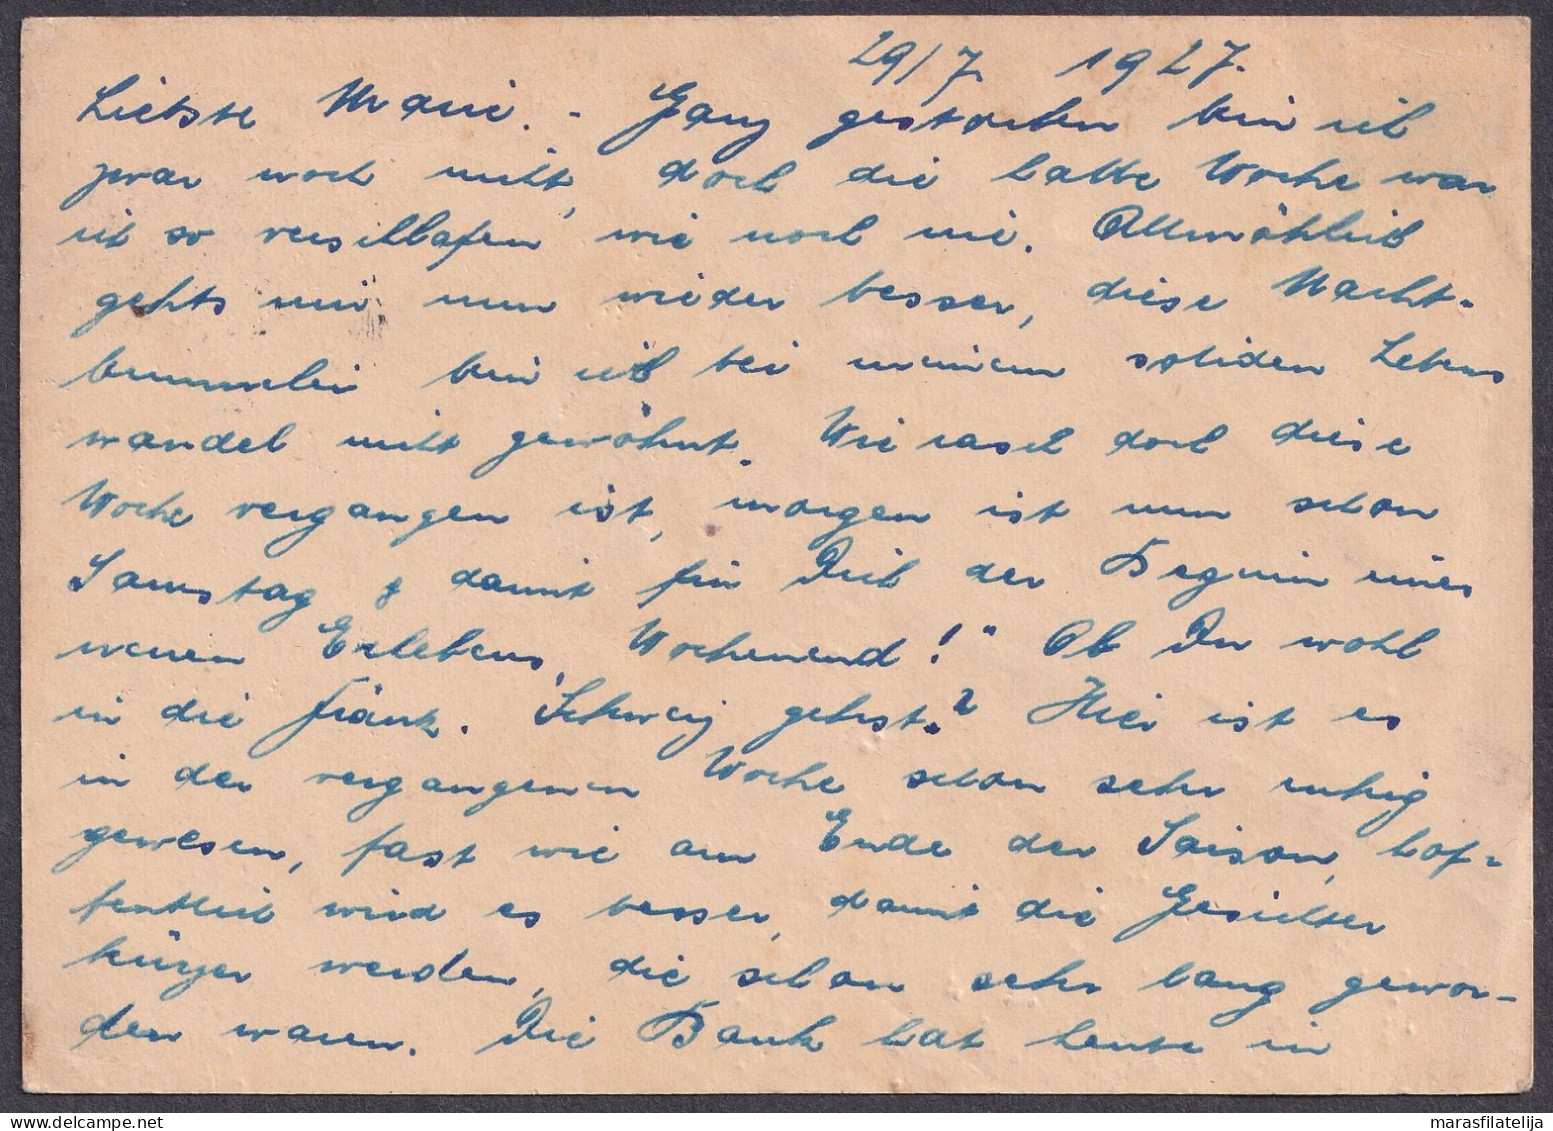 29/7. 1927.
Liebste Marie. - Ganz gestorben bin ich
zwar noch nicht, doch die halbe Woche war
ich so verschlafen wie noch nie. Allmählich
gehts mir nun wieder besser, diese Nacht-
bummelei bin ich bei meinem soliden Lebens
wandel nicht gewöhnt. Wie rasch doch diese
Woche vergangen ist, morgen ist nun schon
Samstag & damit für Dich der Beginn eines
neuen Erlebens „Wochenend!“ Ob Du wohl
in die Fränk. Schweiz gehst? Hier ist es
in der vergangenen Woche schon sehr ruhig
gewesen, fast wie am Ende der Saison, hof-
fentlich wird es besser, damit die Gesichter
kürzer werden, die schon sehr lang gewor-
den waren. Die Bank hat heute in
marasfilatelija